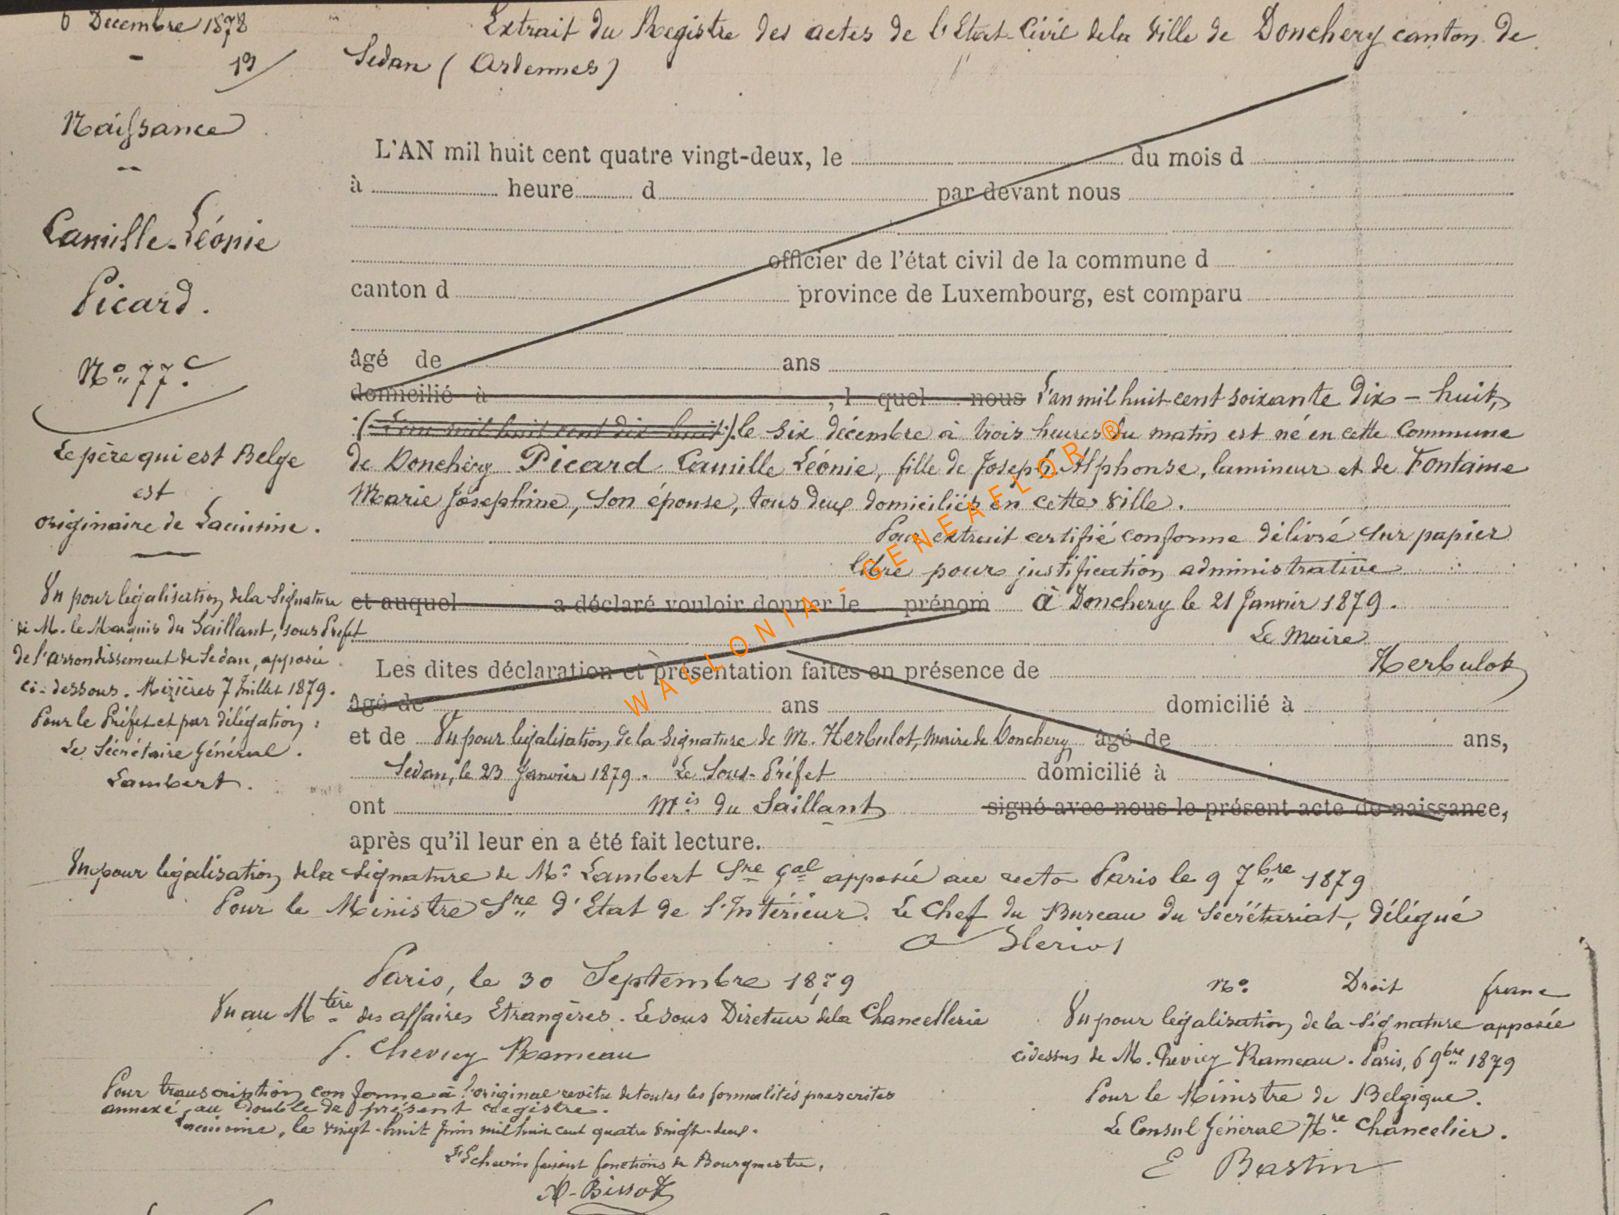 6 Décembre 1878
13
Naissance
Camille-Léonie
Picard.
No 77
Le père qui est Belge
est
originaire de Lacuisine.
Vu pour législation de la Signature
de M. le Marquis du Saillant, sous Préfet
de l'arrondissement de Sedan, apposée
ci-dessous. Mézières 7 Juillet 1879.
Pour le Préfet et par délégation :
Le Sécrétaire Général.
Lambert.
Extrait du Registre des actes de l'Etat-Civil de la Ville de Donchery canton de
Sedan (Ardennes)
L'AN mil huit cent quatre vingt-deux, le du mois d
à heure d par devant nous
officier de l'état civil de la commune d
canton d province de Luxembourg, est comparu
âgé de ans
domicilié à , l quel nous L'an mil huit-cent soixante dix-huit,
(L'an mil huit cent dix huit) le six décembre à trois heures du matin est né en cette Commune
de Donchery Picard Camille Léonie, fille de Joseph Alphonse, lamineur et de Fontaine
Marie Joséphine, son épouse, tous deux domiciliés en cette ville.
Pour extrait certifié conforme délivré sur papier
libre pour justification administrative
et auquel a déclaré vouloir donner le prénom à Donchery le 21 Janvier 1879.
Le Maire
Les dites déclaration et présentation faites en présence de Herbulot
âgé de ans domicilié à
et de Vu pour législation de la Signature de M. Herbulot, maire de Donchery âgé de ans,
Sedan, le 23 Janvier 1879. Le Sous-Préfet domicilié à
ont Mis du Saillant signé avec nous le présent acte de naissance,
après qu'il leur en a été fait lecture.
Vu pour légalisation de la Signature de Mr Lambert Sre Gal apposée au recto Paris le 9 7bre 1879
Pour le Ministre Sre d'Etat de l'Intérieur. Le Chef du Bureau du Secrétariat, délégué
Paris, le 30 Septembre 1879
Vu au Mtère des affaires Etrangères. Le sous Directeur de la Chancellerie
Chevrey Rameau
No Droit franc
Vu pour légalisation de la Signature apposée
cidessus de M. Chevrey Rameau. Paris, 6 9bre 1879
Pour le Ministre de Belgique.
Le Consul Général Hre Chancelier.
E Bastin
Pour transcription conforme à l'original revêtu de toutes les formalités prescrites
annexé au double du présent registre.
Lacuisine, le vingt-huit juin mil huit cent quatre vingt-deux.
L'Echevin faisant fonctions de Bourgmestre,
WALLONIA - GENEAFLOR ®